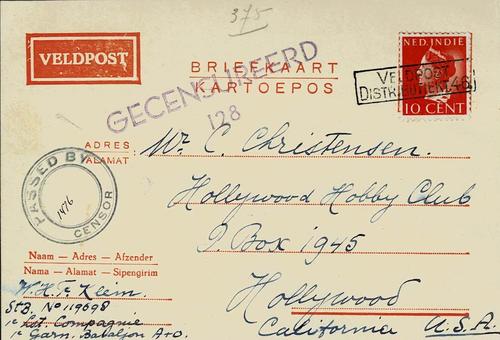 375
VELDPOST
BRIEFKAART
KARTOEPOS
GECENSUREERD
128
NED. INDIE
10 CENT
VELDPOST
DISTRIBUTIEKT. 46
ADRES :
ALAMAT
Mr. C. Christensen.
Hollywood Hobby Club
P. Box 1945
Hollywood
California U.S.A.
PASSED BY
CENSOR
1476
Naam — Adres — Afzender
Nama — Alamat — Sipengirim
W. H. Fc Klein.
StB. No 119698
1e Compagnie
1e Garn. Bataljon A+O.